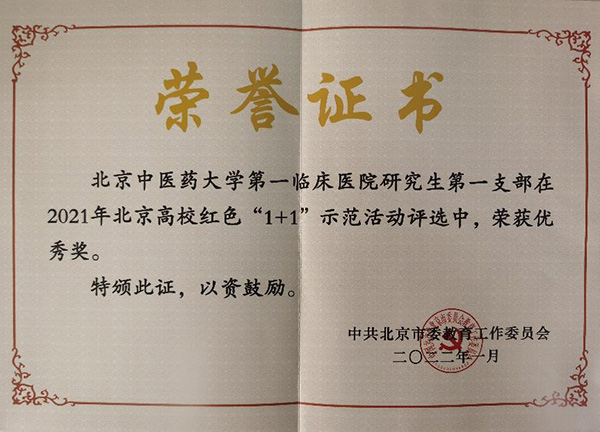 荣誉证书
北京中医药大学第一临床医院研究生第一支部在
2021年北京高校红色“1+1”示范活动评选中，荣获优
秀奖。
特颁此证，以资鼓励。
中共北京市委教育工作委员会
二〇二二年一月